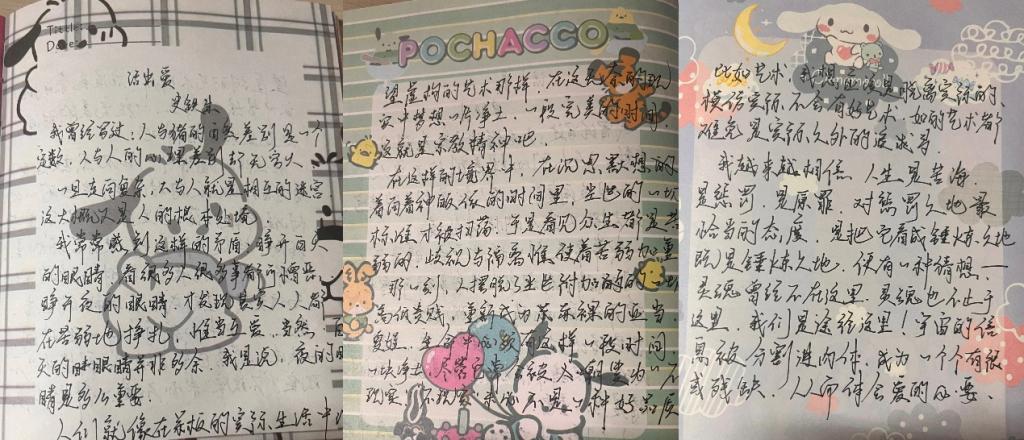 Title:
Da
活出爱
史铁生
我曾经写过：人与猪的 差别是一个
定数，人与人的 差别却无穷大
一旦走向 ，人与人就是相互的迷宫
这大概又是人的根本处境
我常常感到这样的矛盾：睁开白天
的眼睛，看很多人很多事都可憎恶。
睁开夜的眼睛，才发现其实人人都
在苦弱地挣扎，惟当互爱。当然
天的眼睛并非多余，我是说，夜的眼
睛是多么重要。
人们就像在呆板的实际生活中
POCHACCO
望虚构的艺术那样，在这 的现
实中梦想一片净土、一段完美的时间，
这就是宗教精神吧。
在这样的境界中，在沉思默想的
着 的时间里，尘世的一切
标准才被扫荡，于是看见众生都是苦
弱的，歧视与隔离惟使着苦弱加重
那一刻，人摆脱了尘世附加的 一切
高低贵贱，重新成为 的亚当
夏娃。 这样一段时间
一块净土， 被人 为一个
现实。 不是一种好品质
比如艺术，我想 是脱离实际的。
模仿实际不会有好艺术， 好的艺术都
难免是实际之外的追寻。
我越来越相信，人生是苦海，
是惩罚，是原罪。对惩罚之地最
恰当的态度，是把它看成锤炼之地
既是锤炼之地，便有一种猜想——
灵魂曾经不在这里，灵魂也不止于
这里，我们是途经这里！宇宙的信
息被分割进肉体，成为一个个有限
或残缺，从而体会爱的必要。